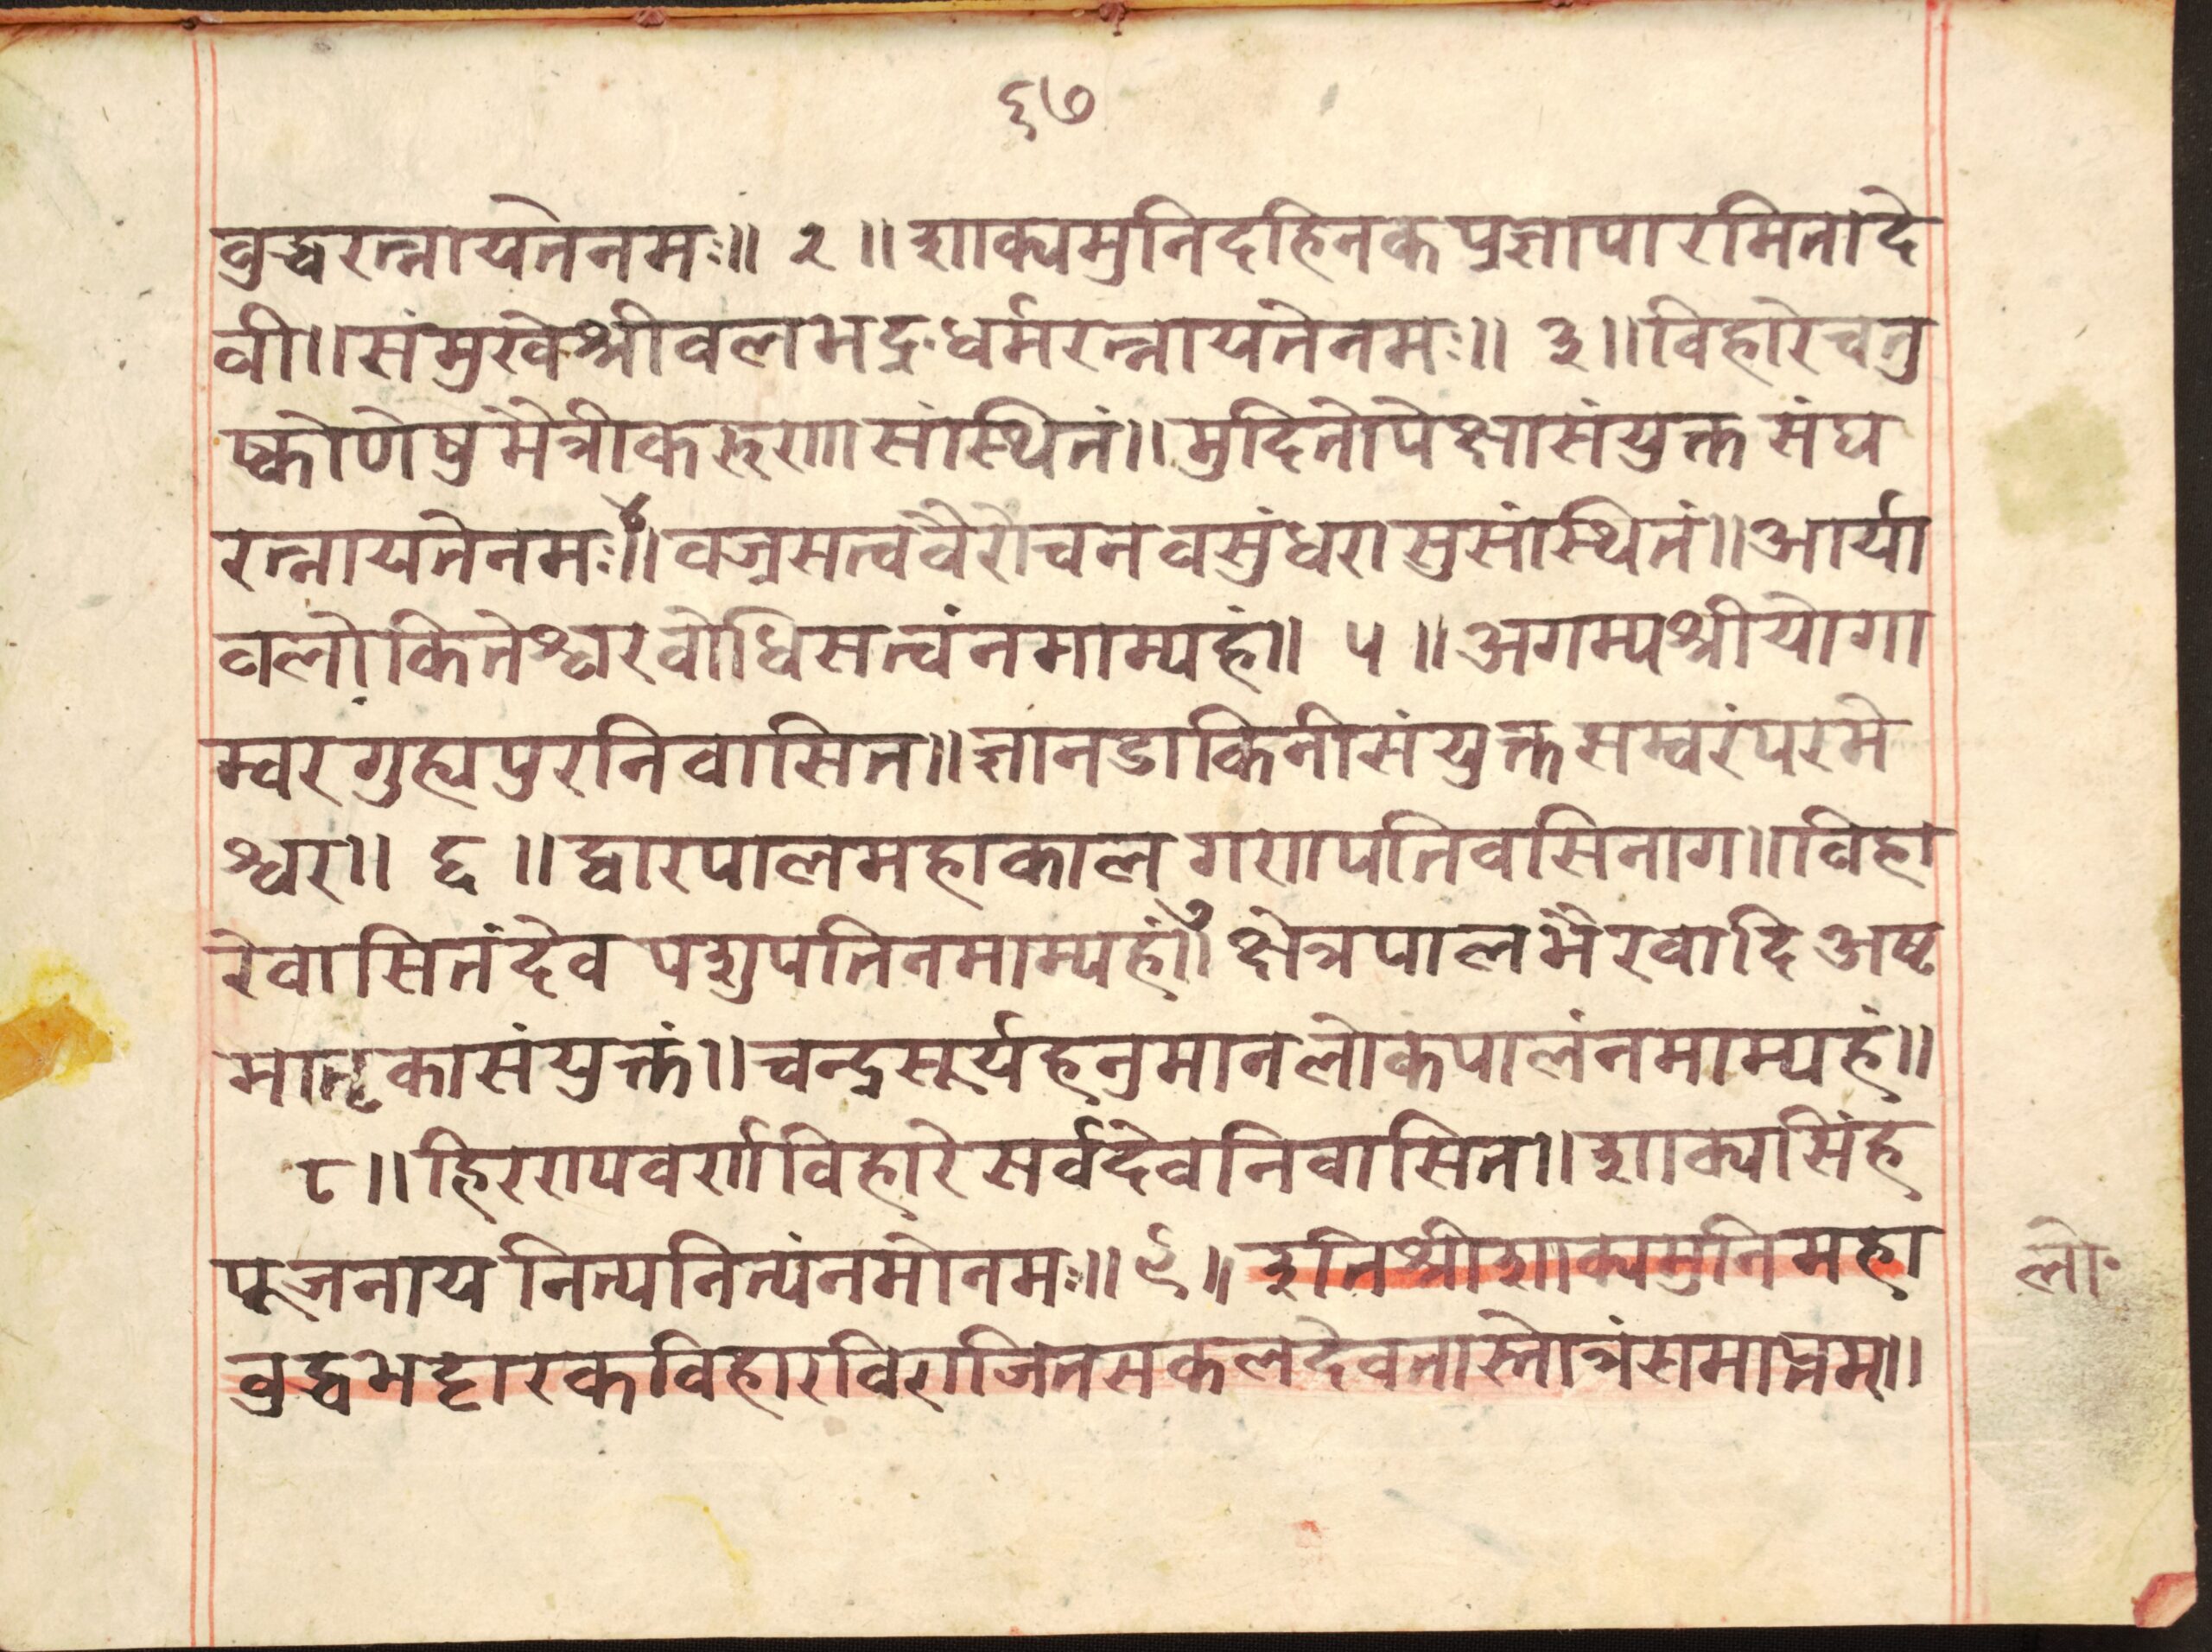 ६७
वुद्धरत्नायतेनमः॥ २ ॥शाक्यमुनिदहिनकप्रज्ञापारमितादे
वी॥संमुखेश्रीवलभद्रःधर्मरत्नायतेनमः॥ ३॥विहारेचतु
ष्कोणेषुमैत्रीकरुणासांस्थितं॥मुदितोपेक्षासंयुक्तसंघ
रत्नायतेनमः॥४वज्रसत्ववैरोचनवसुंधरासुसांस्थितं॥आर्या
वलोकितेश्वरवोधिसत्वंनमाम्यहं॥ ५ ॥अगम्यश्रीयोगा
म्वरगुह्यपुरनिवासित॥ज्ञानडाकिनीसंयुक्तसम्वरंपरमे
श्वर॥ ६ ॥द्वारपालमहाकाल गणपतिवसिनाग॥विहा
रेवासितंदेव पशुपतिनमाम्यहं॥७ क्षेत्रपालभैरवादिअष्ट
मातृकासंयुक्तं॥चन्द्रसूर्यहनुमानलोकपालंनमाम्यहं॥
८॥हिरण्यवर्णविहारेसर्वदेवनिवासित॥शाक्यसिंह
पूजनाय नित्यनित्यंनमोनमः॥९॥ इतिश्रीशाक्यमुनिमहा
वुद्धभट्टारकविहारविराजितसकलदेवतास्तोत्रंसमाप्तम्॥
लो॰